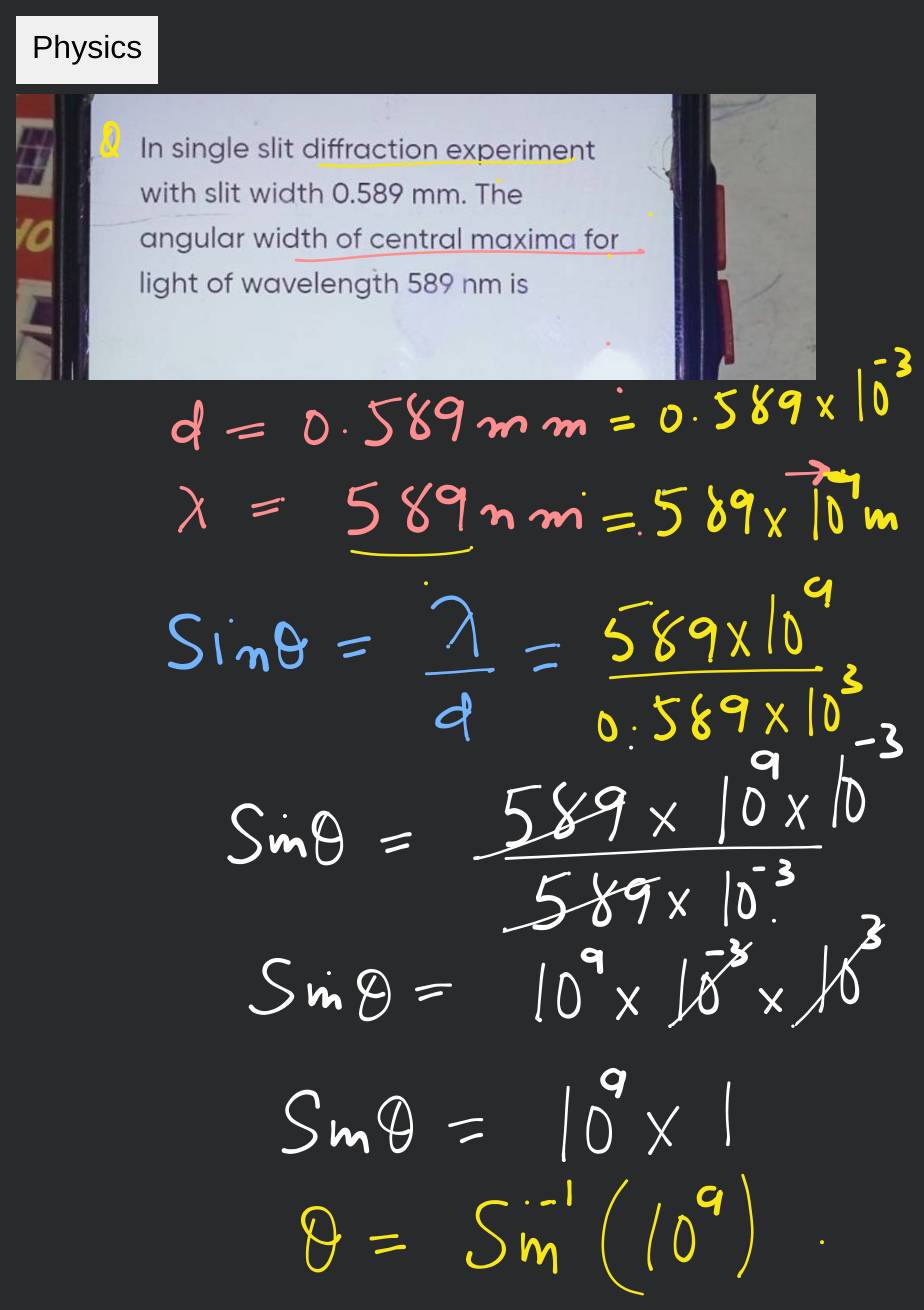 Physics
Q In single slit diffraction experiment
with slit width 0.589 mm. The
angular width of central maxima for
light of wavelength 589 nm is
d = 0.589 mm = 0.589 × 10⁻³
λ = 589 nm = 589 × 10⁻⁹ m
Sinθ = λ/d = 589×10⁹ / 0.589×10³
Sinθ = 589 × 10⁹ × 10⁻³ / 589 × 10⁻³
Sinθ = 10⁹ × 10⁻³ × 10³
Sinθ = 10⁹ × 1
θ = Sin⁻¹ (10⁹)